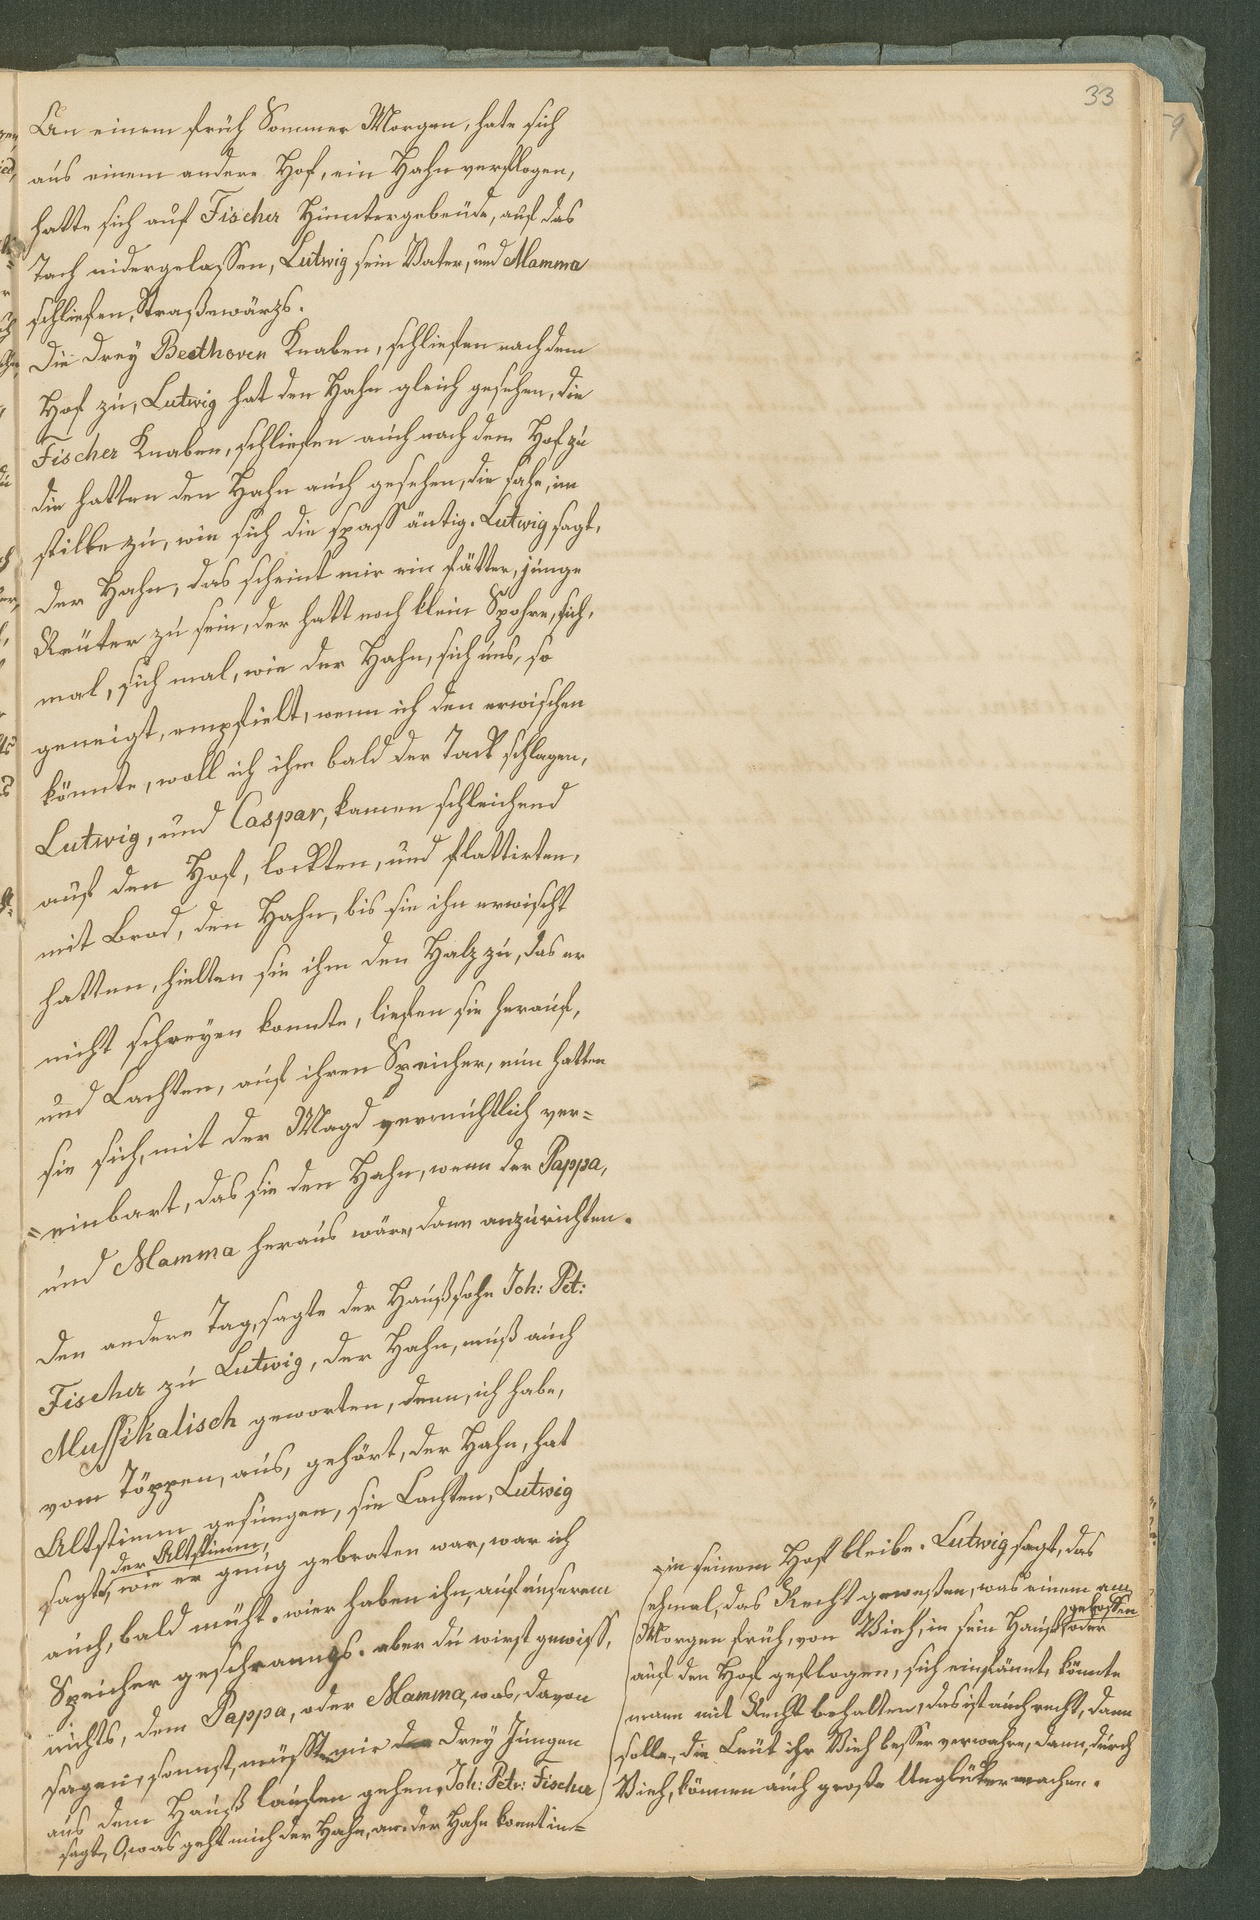 33
An einem früh Sommer Morgen, hate sich
aus einem andere Hof, ein Hahn verflogen,
hatte sich auf Fischer Hinntergebeüde, auf das
Tach nidergelassen, Lutwig sein Vater, und Mamma
schliefen, Straßewärzs.
Die Drey Beethoven Knaben, schliefen nach dem
Hof zu, Lutwig hat den Hahn gleich gesehen, die
Fischer Knaben, schliefen auch nach dem Hof zu
die hatten den Hahn auch gesehen, die sahe, im
stille zu, wie sich die spass äntig. Lutwig sagt,
der Hahn, das scheint mir ein fätter, junge
Reuter zu sein, der hatt noch klein Spohre, sich,
mal, sich mal, wie der Hahn, sich uns, so
geneigt, empfielt, wenn ich den erwischen
könnte, woll ich ihm bald der Tack schlagen,
Lutwig, und Caspar, kamen schleichend
auf den Hof, lockten, und flattirten,
mit Brod, den Hahn, bis sie ihn erwischt
hatten, hielten sie ihm den Halz zu, das er
nicht schreyen konnte, liefen sie herauf,
und Lachten, auf ihren Speicher, nun hatten
sie sich, mit der Magd vermuhtlich ver=
=einbart, das sie den Hahn, wenn der Pappa,
und Mamma heraus wäre, dann anzurichten.
Den andere Tag, sagte der Haußsohn Joh: Pet:
Fischer zu Lutwig, der Hahn, muß auch
Mussikalisch geworten, denn, ich habe,
vom Töppen, aus, gehört, der Hahn, hat
Altstimm gesungen, sie Lachten, Lutwig
der Altstimm,
sagte, wie er gnug gebraten war, war ich
auch, bald müht. wier haben ihn, auf unserem
Speicher geschranngs. aber du wirst gewiss,
nichts, dem Pappa, oder Mamma, was, davon
sagen, sonnst, müsste mir Drey Jungen
aus dem Hauß laufen gehen, Joh: Petr: Fischer
sagt, O, was geht mich der Hahn, an. der Hahn konnt in=
in seinem Hoff bleibe. Lutwig sagt, das
ehmal, das Recht gewesten, was einem am
geloffen
Morgen früh, von Vieh, in sein Hauß oder
auf den Hof geflogen, sich einfännt, könnte
mann mit Recht behalten, das ist auch recht, dann
solle, die Leut ihr Vieh besser verwahre, dann, durch
Vieh, können auch große Unglücker machen.